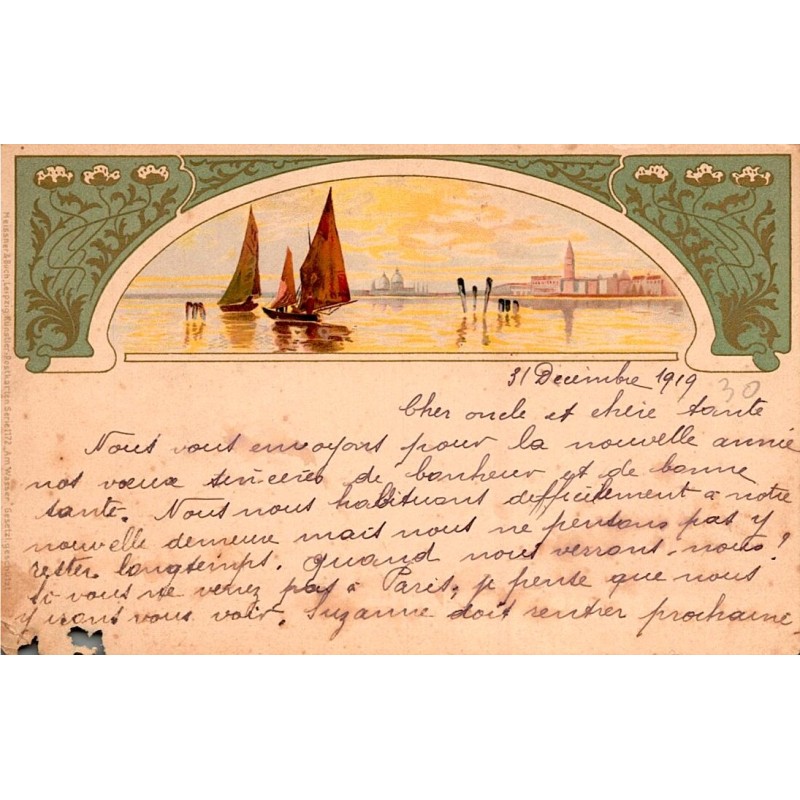 31 Decembre 1919
30
Cher oncle et chère tante
Nous vous envoyons pour la nouvelle année
nos vœux sincères de bonheur et de bonne
santé. Nous nous habituons difficilement à notre
nouvelle demeure mais nous ne pensons pas y
rester longtemps. Quand nous verrons-nous?
si vous ne venez pas à Paris, je pense que nous
y irons vous voir. Suzanne doit rentrer prochaine-
Meissner & Buch, Leipzig, Künstler-Postkarten Serie 1172 „Am Wasser“